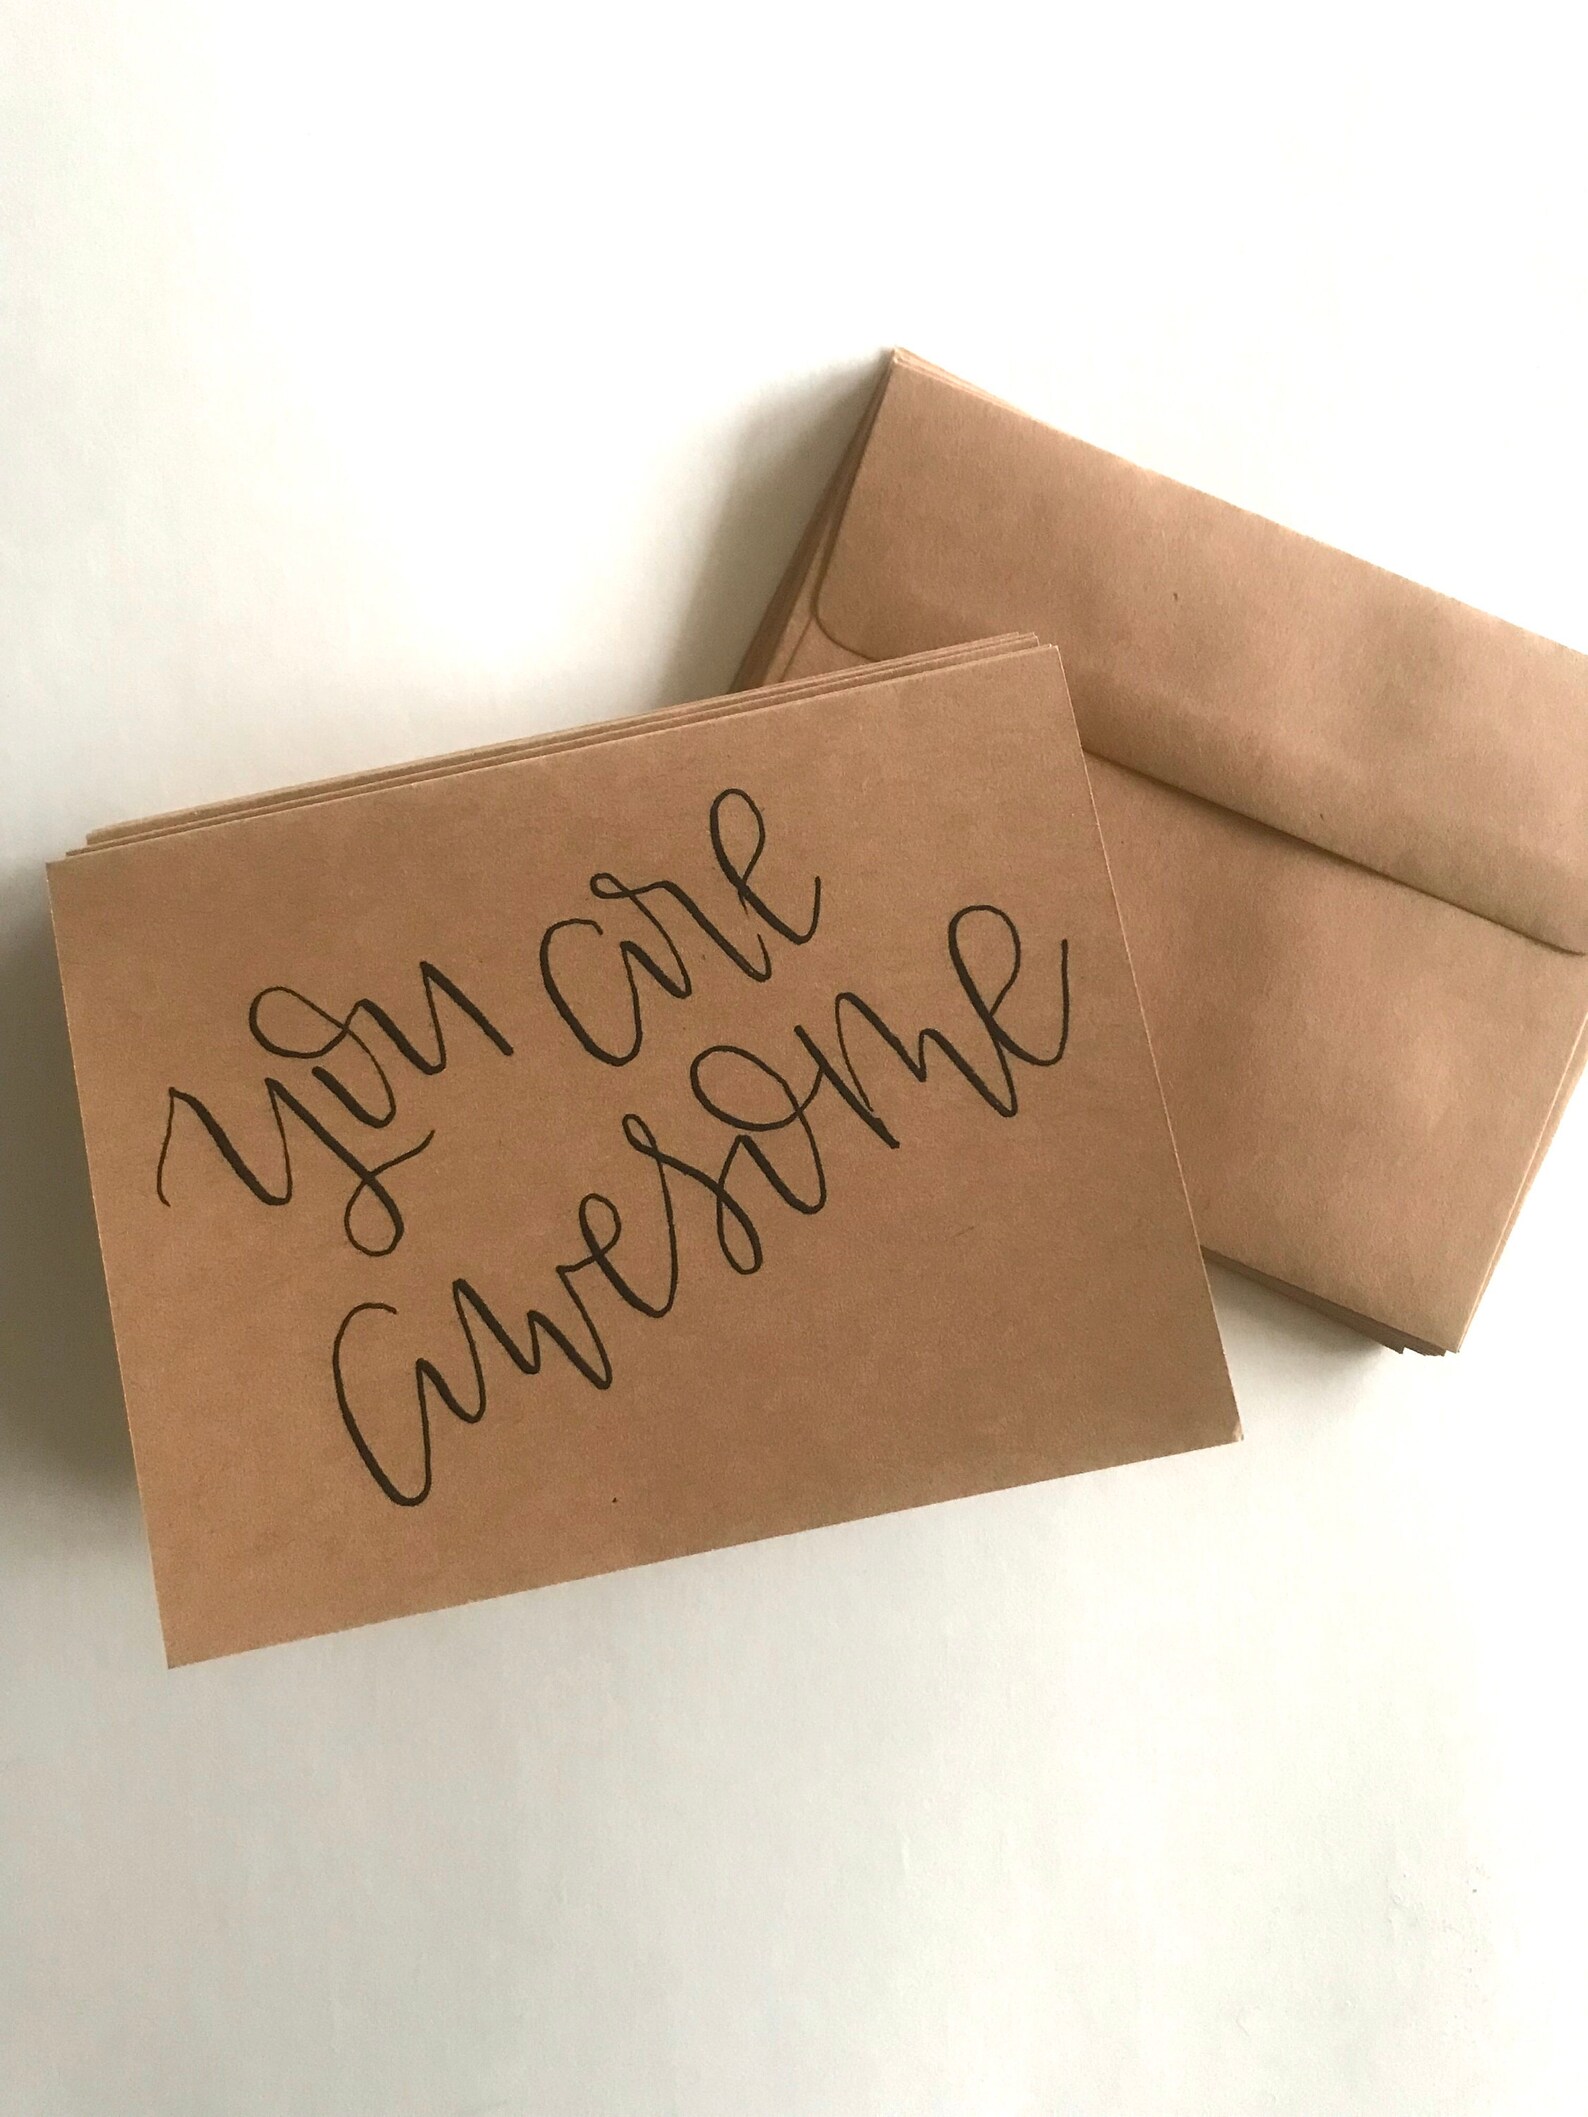 you are
awesome